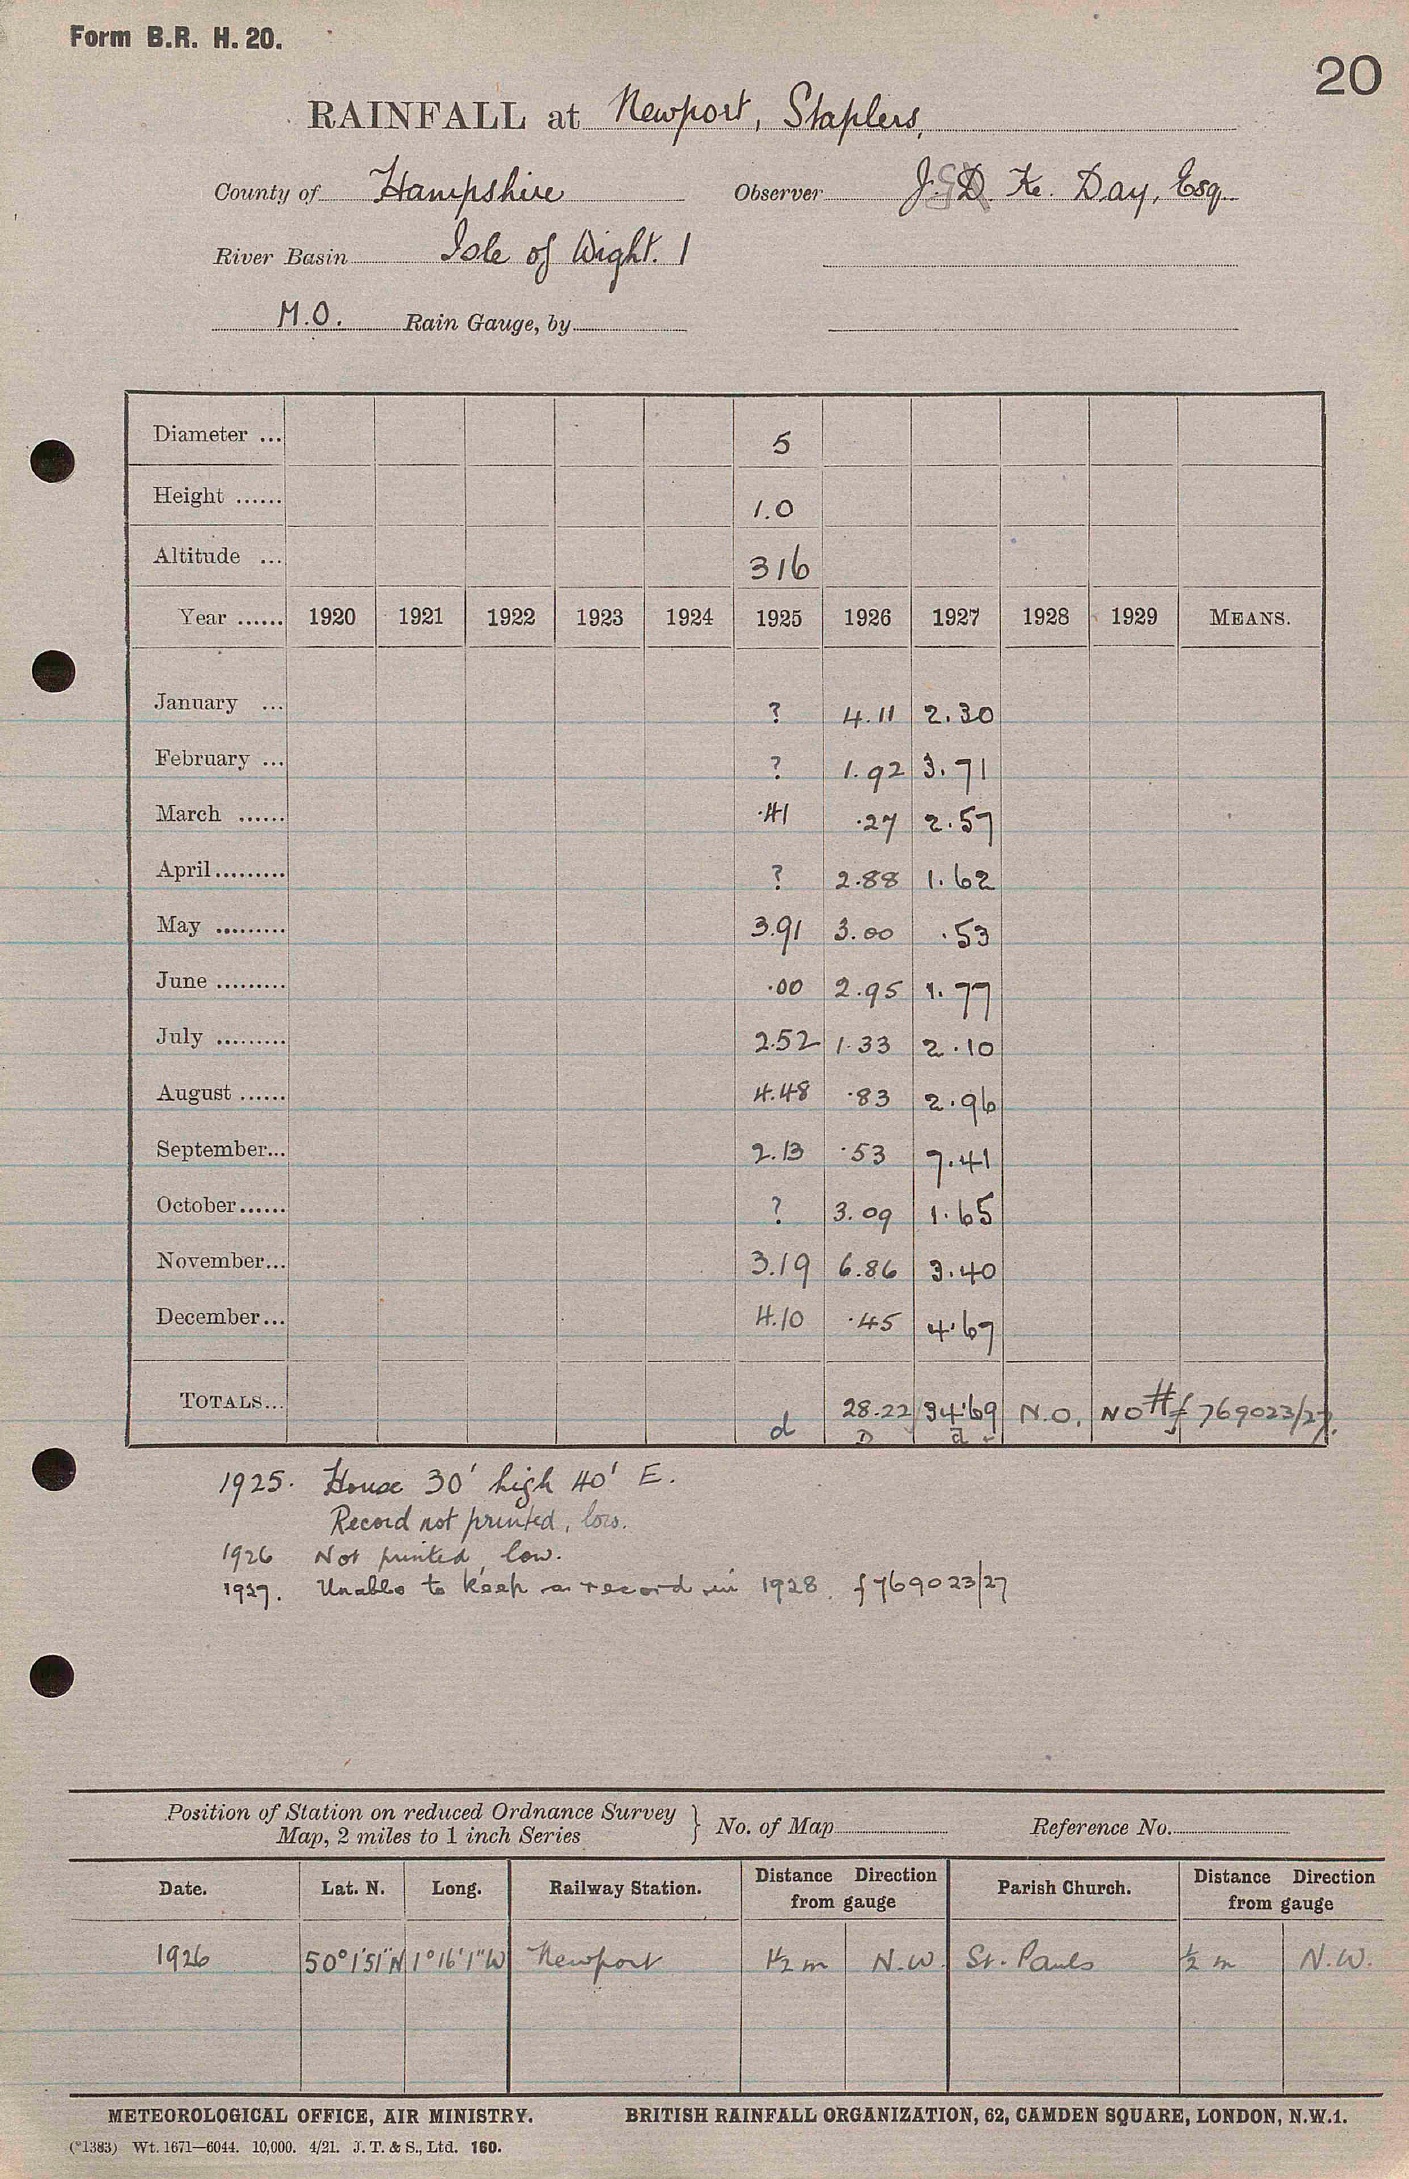 Form B.R. H. 20.
20
RAINFALL at Newport, Staplers,
County of Hampshire Observer J. D. K. Day, Esq.
River Basin Isle of Wight. 1
M.O. Rain Gauge, by
Diameter ... 5
Height ...... 1.0
Altitude ... 316
Year ...... 1920 1921 1922 1923 1924 1925 1926 1927 1928 1929 MEANS.
January ... ? 4.11 2.30
February ... ? 1.92 3.71
March ...... .41 .27 2.57
April......... ? 2.88 1.62
May ......... 3.91 3.00 .53
June ......... .00 2.95 1.77
July ......... 2.52 1.33 2.10
August ...... 4.48 .83 2.96
September... 2.13 .53 7.41
October...... ? 3.09 1.65
November... 3.19 6.86 3.40
December... 4.10 .45 4.67
TOTALS... d 28.22 D 34.69 d N.O. NO # f 769023/27.
1925. House 30' high 40' E.
Record not printed, low.
1926 Not printed, low.
1927. Unable to keep a record in 1928. f 769023/27
Position of Station on reduced Ordnance Survey
Map, 2 miles to 1 inch Series } No. of Map Reference No.
Date. Lat. N. Long. Railway Station. Distance Direction from gauge Parish Church. Distance Direction from gauge
1926 50°1'51"N 1°16'1"W Newport 1½ m N.W. St. Pauls ½ m N.W.
METEOROLOGICAL OFFICE, AIR MINISTRY. BRITISH RAINFALL ORGANIZATION, 62, CAMDEN SQUARE, LONDON, N.W.1.
(*1383) Wt. 1671—6044. 10,000. 4/21. J. T. & S., Ltd. 160.